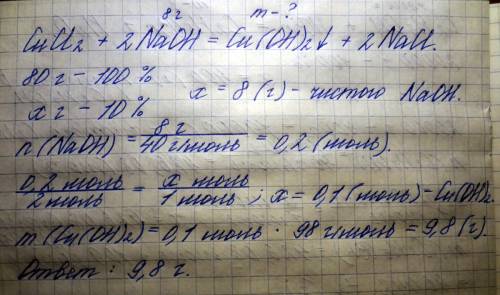 8 г m - ?
CuCl₂ + 2 NaOH = Cu(OH)₂↓ + 2 NaCl.
80 г - 100 %
x г - 10 % x = 8 (г) - чистого NaOH.
n (NaOH) = 8 г / 40 г/моль = 0,2 (моль).
0,2 моль / 2 моль = x моль / 1 моль ; x = 0,1 (моль) - Cu(OH)₂.
m (Cu(OH)₂) = 0,1 моль · 98 г/моль = 9,8 (г).
Ответ : 9,8 г.